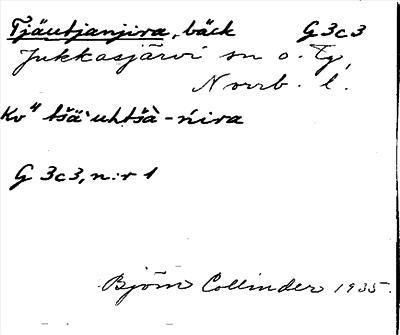 Tjäutjanjira, bäck G3c3
Jukkasjärvi sn o. tg,
Norrb. l.
Kv" tšäˋuhtšà-ńira
G 3c3, n:r 1
Björn Collinder 1935.